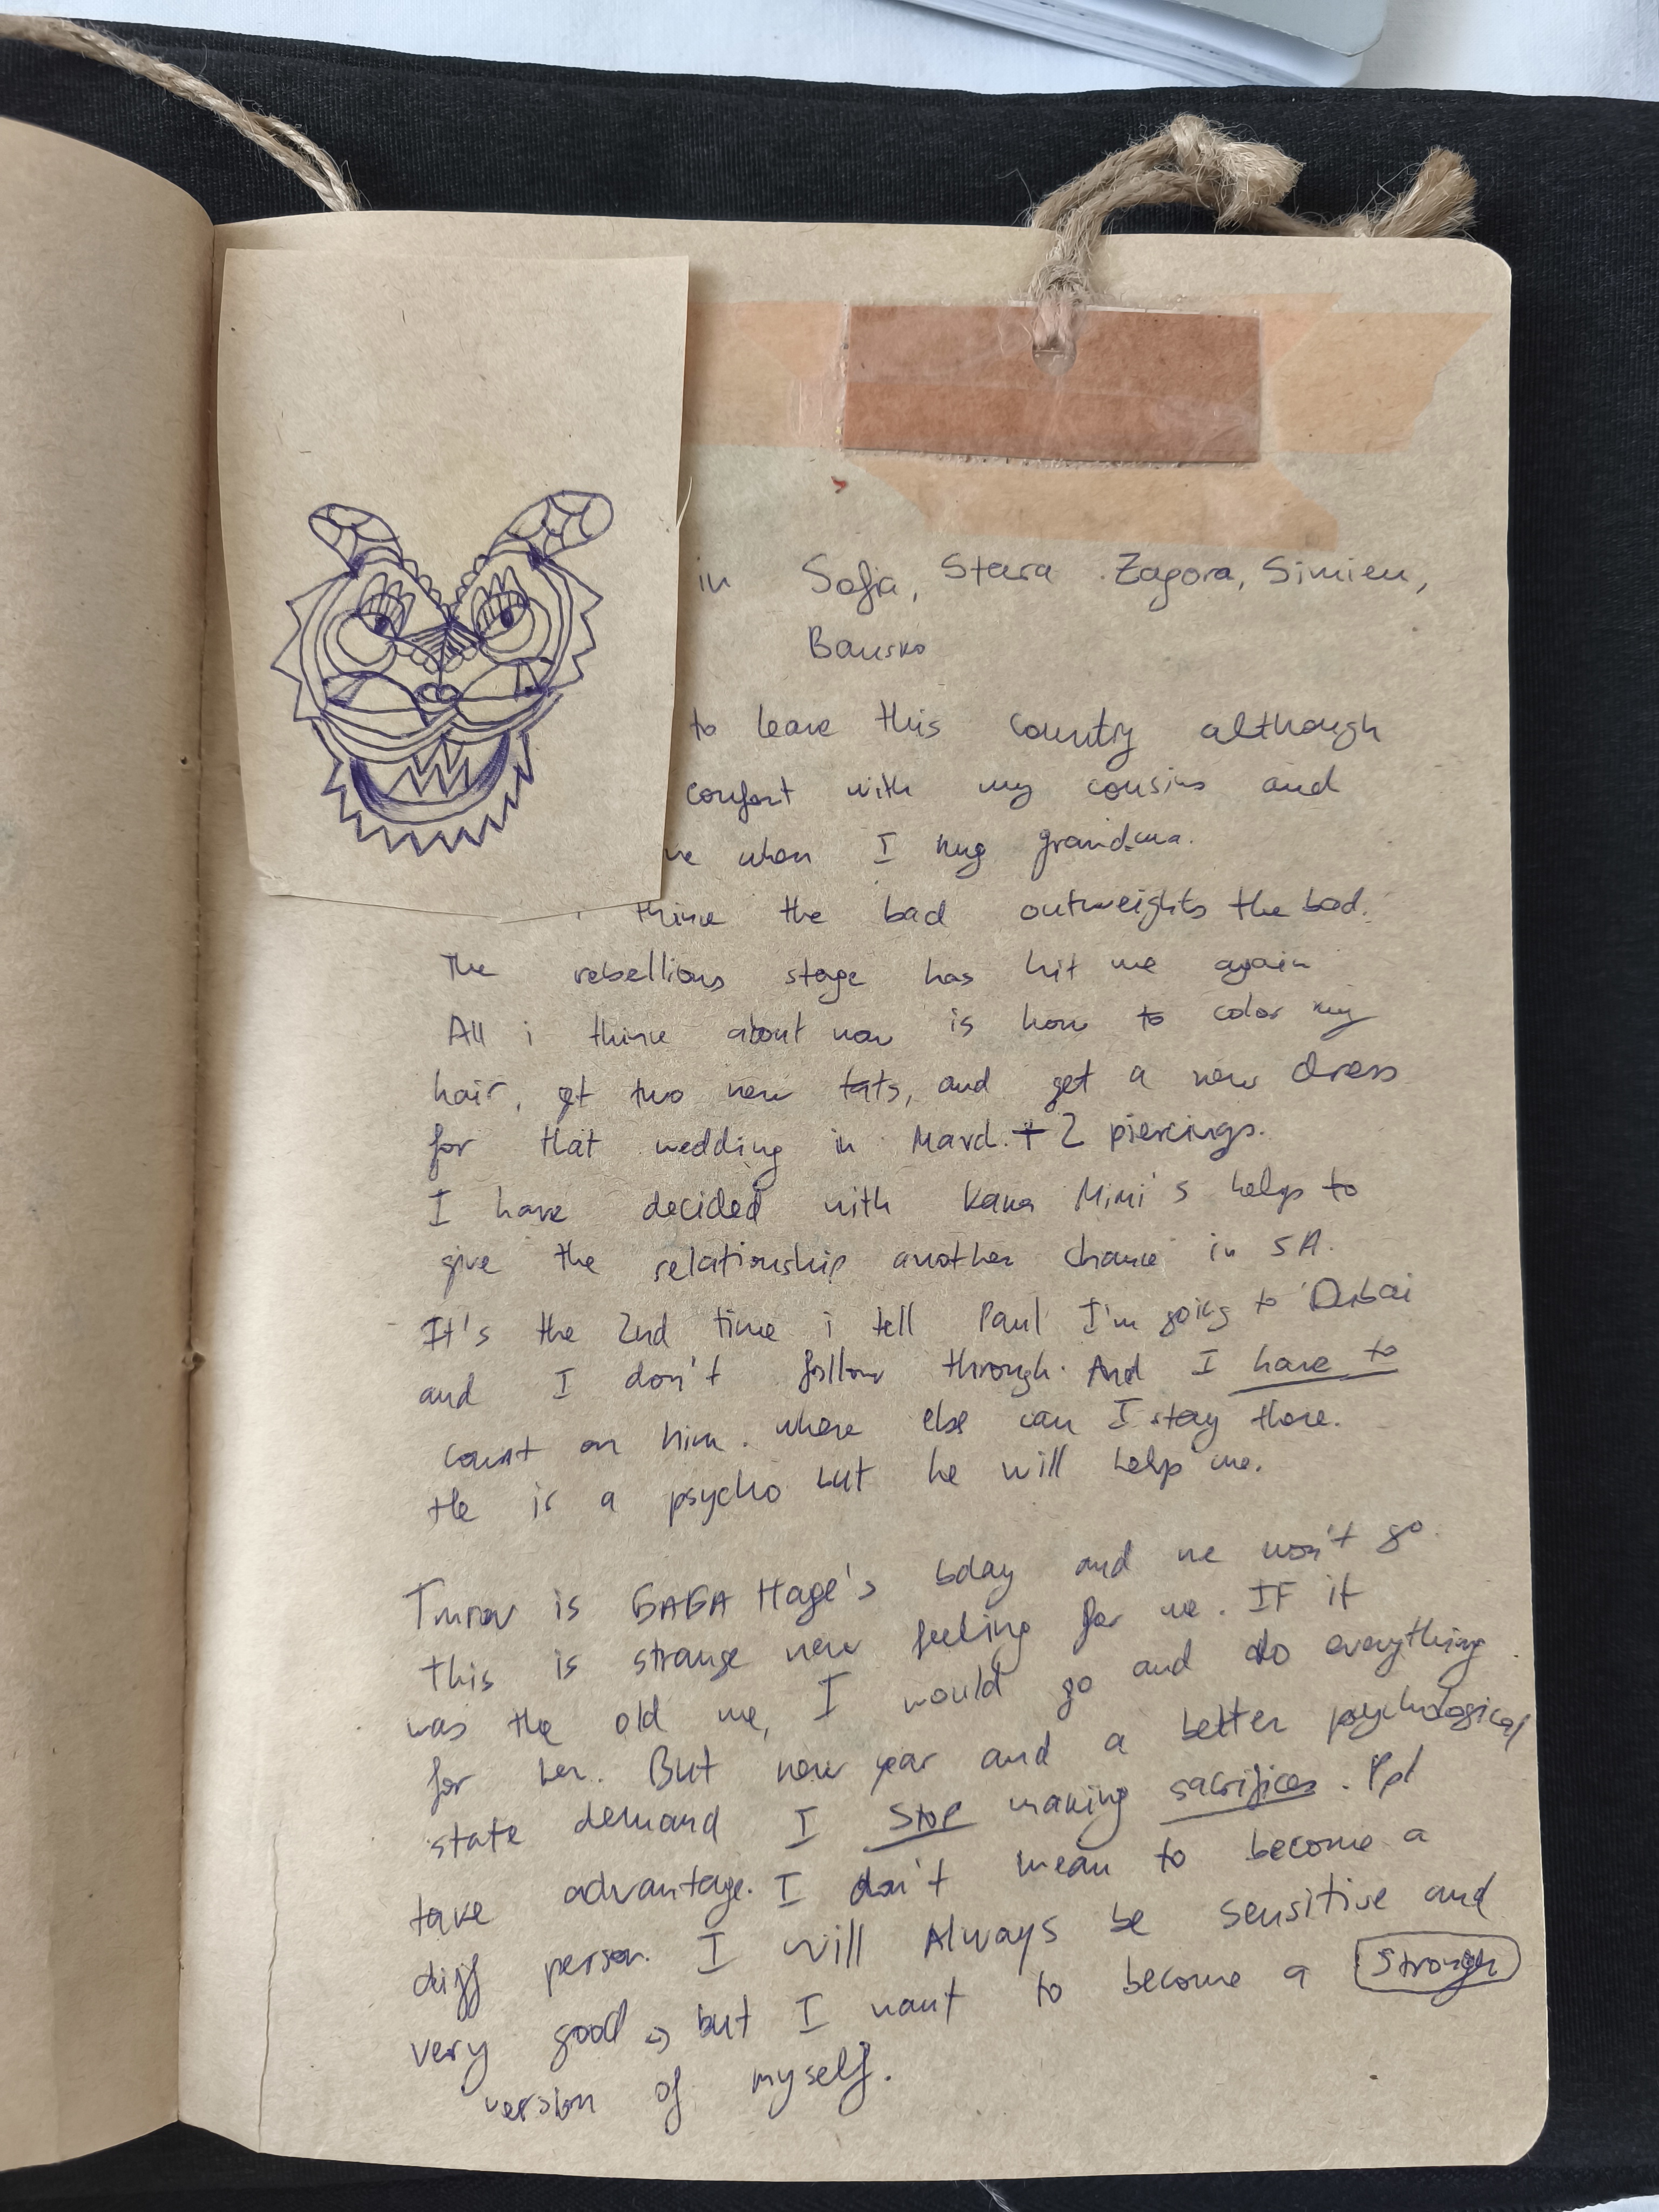 in Sofia, Stara Zagora, Simien,
Bansko
to leave this country although
comfort with my cousins and
me when I hug grandma.
think the bad outweights the bad.
The rebellious stage has hit me again
All i think about now is how to color my
hair, get two new tats, and get a new dress
for that wedding in March. + 2 piercings.
I have decided with Kaka Mimi's helps to
give the relationship another chance in SA.
It's the 2nd time i tell Paul I'm going to Dubai
and I don't follow through. And I have to
count on him. where else can I stay there.
He is a psycho but he will help me.
Tmrow is GAGA Hage's bday and we won't go.
this is strange new feeling for me. IF it
was the old me, I would go and do everything
for her. But new year and a better psychological
state demand I STOP making sacrifices. Ppl
take advantage. I don't mean to become a
diff person. I will Always be sensitive and
very good, but I want to become a strongr
version of myself.